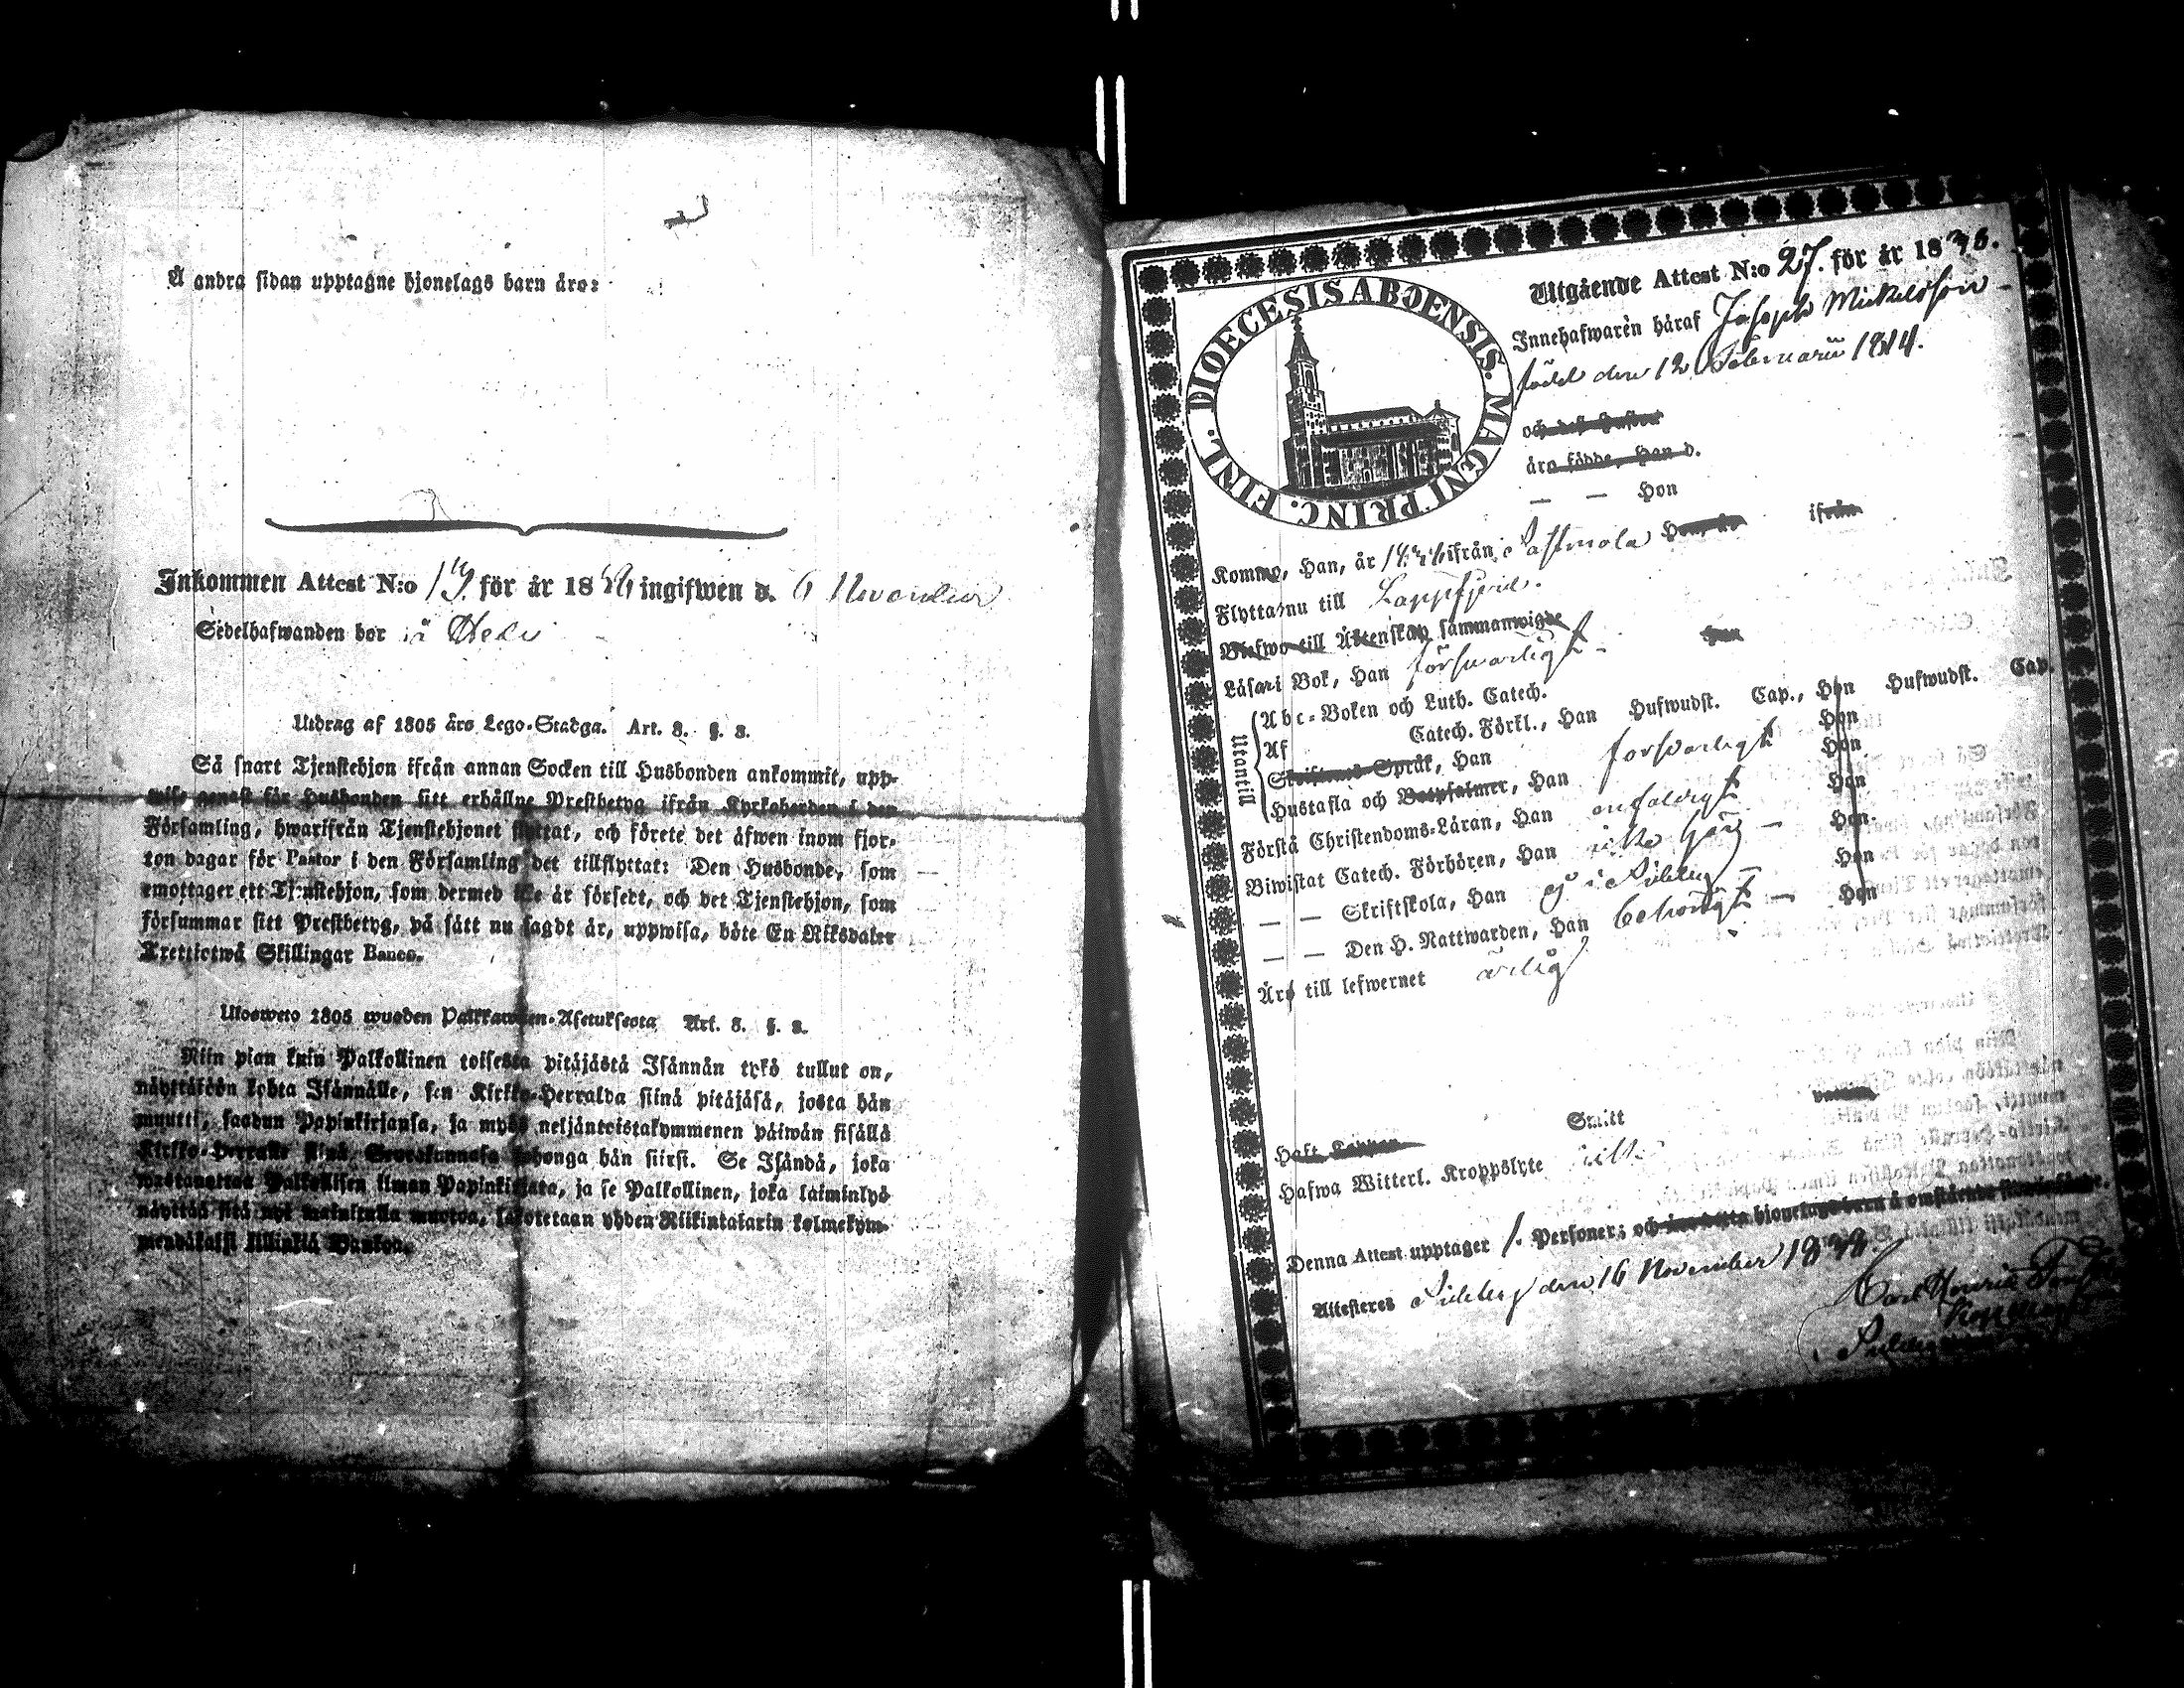 Å andra sidan upptagne hjonelags barn äro:
Inkommen Attest N:o 13. för år 1836 ingifwen d. 6 November
Sedelhafwanden bor i
Utdrag af 1805 års Lego-Stadga. Art. 8. §. 8.
Så snart Tjenstehjon ifrån annan Socken till Husbonden ankommit, upp-
wise genast för Husbonden sitt erhållne Prestbetyg ifrån Kyrkoherden i den
Församling, hwarifrån Tjenstehjonet flyttat, och förete det äfwen inom fjor-
ton dagar för Pastor i den Församling det tillflyttat: Den Husbonde, som
emottager ett Tjenstehjon, som dermed icke är försedt, och det Tjenstehjon, som
försummar sitt Prestbetyg, på sätt nu sagdt är, uppwisa, böte En Riksdaler
Trettiotwå Skillingar Banco.
Ulosweto 1805 wuoden Palkkawäen-Asetuksesta Art. 8. §. 8.
Niin pian kuin Palkollinen toisesta pitäjästä Isännän tykö tullut on,
näyttäköön kohta Isännälle, sen Kirkko-Herralda siinä pitäjäsä, josta hän
muutti, saadun Papinkirjansa, ja myös neljäntoistakymmenen päiwän sisällä
Kirkko-Herralle siinä Seurakunnasa johonga hän siirsi. Se Isändä, joka
wastanottaa Palkollisen ilman Papinkirjata, ja se Palkollinen, joka laiminlyö
näyttää sitä nyt mainitulla muotoa, sakotetaan yhden Riikintalarin kolmekym-
mendäkaksi killinkiä Bankoa.
DIOECESIS ABOENSIS. MAGNI PRINC. FINL.
Utgående Attest N:o 27. för år 1836.
Innehafwaren häraf Joseph Mickelsson
född den 12 Februarii 1814.
och dess Hustru
äro födde, Han d.
— — Hon
Kommo, Han, år 1836 ifrån Sastmola Hon, år ifrån
Flytta nu till Lappfjerd.
Blefwo till Äktenskap sammanwigde
Läsa i Bok, Han försvarligt - Hon
Utantill
Abc-Boken och Luth. Catech.
Af Catech. Förkl., Han Hufwudst. Cap., Hon Hufwudst. Cap.
Skriftenes Språk, Han Hon
Hustafla och Botpsalmer, Han försvarligt Hon
Förstå Christendoms-Läran, Han enfaldigt Hon
Biwistat Catech. Förhören, Han icke här — Hon
— — Skriftskola, Han ej i Sideby Hon
— — Den H. Nattwarden, Han behörigt — Hon
Äro till lefwernet ärlig
Haft Koppor Smitt vaccin
Hafwa Witterl. Kroppslyte icke
Denna Attest upptager 1. Personer; och äro detta hjonelags barn å omstående sida införde.
Attesteres Sideby den 16 November 1836.
Carl Henric